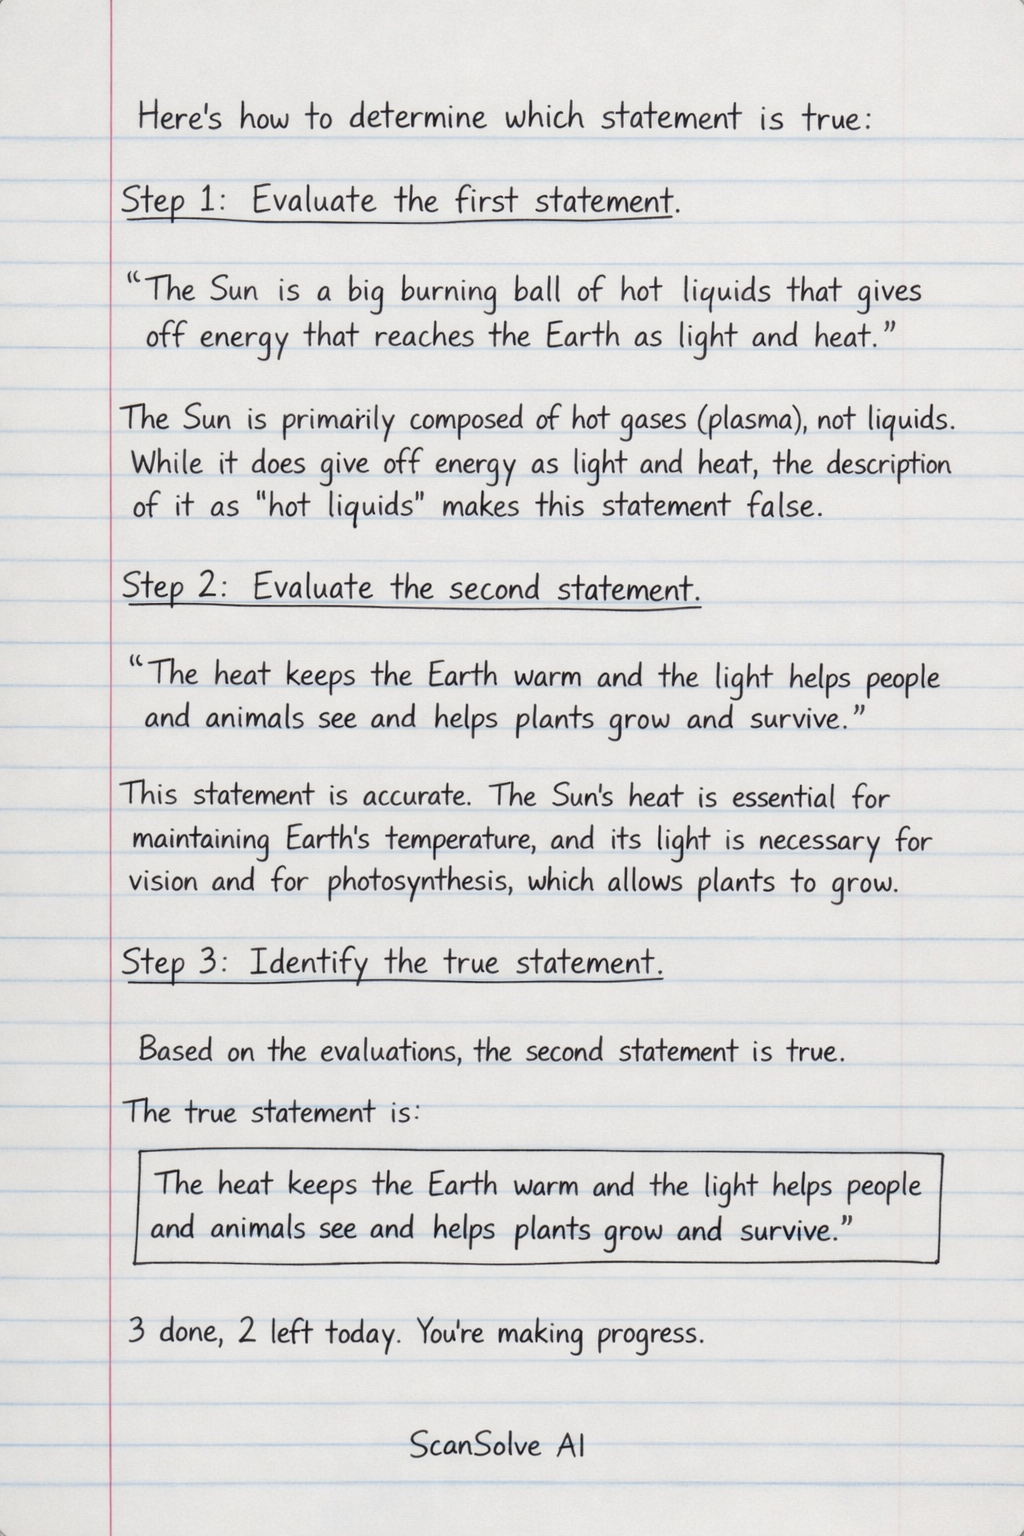 Here's how to determine which statement is true:
Step 1: Evaluate the first statement.
“The Sun is a big burning ball of hot liquids that gives
off energy that reaches the Earth as light and heat.”
The Sun is primarily composed of hot gases (plasma), not liquids.
While it does give off energy as light and heat, the description
of it as "hot liquids" makes this statement false.
Step 2: Evaluate the second statement.
“The heat keeps the Earth warm and the light helps people
and animals see and helps plants grow and survive.”
This statement is accurate. The Sun's heat is essential for
maintaining Earth's temperature, and its light is necessary for
vision and for photosynthesis, which allows plants to grow.
Step 3: Identify the true statement.
Based on the evaluations, the second statement is true.
The true statement is:
The heat keeps the Earth warm and the light helps people
and animals see and helps plants grow and survive.”
3 done, 2 left today. You're making progress.
ScanSolve AI